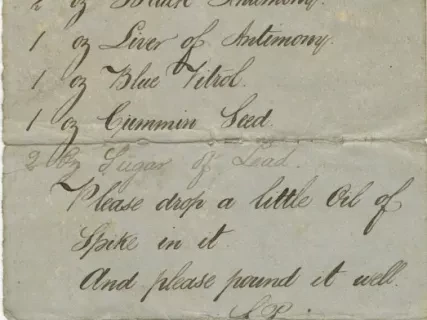 2 oz Black Antimony.
1 oz Liver of Antimony.
1 oz Blue Vitrol.
1 oz Cummin Seed.
2 oz Sugar of Lead.
Please drop a little Oil of
Spike in it.
And please pound it well.